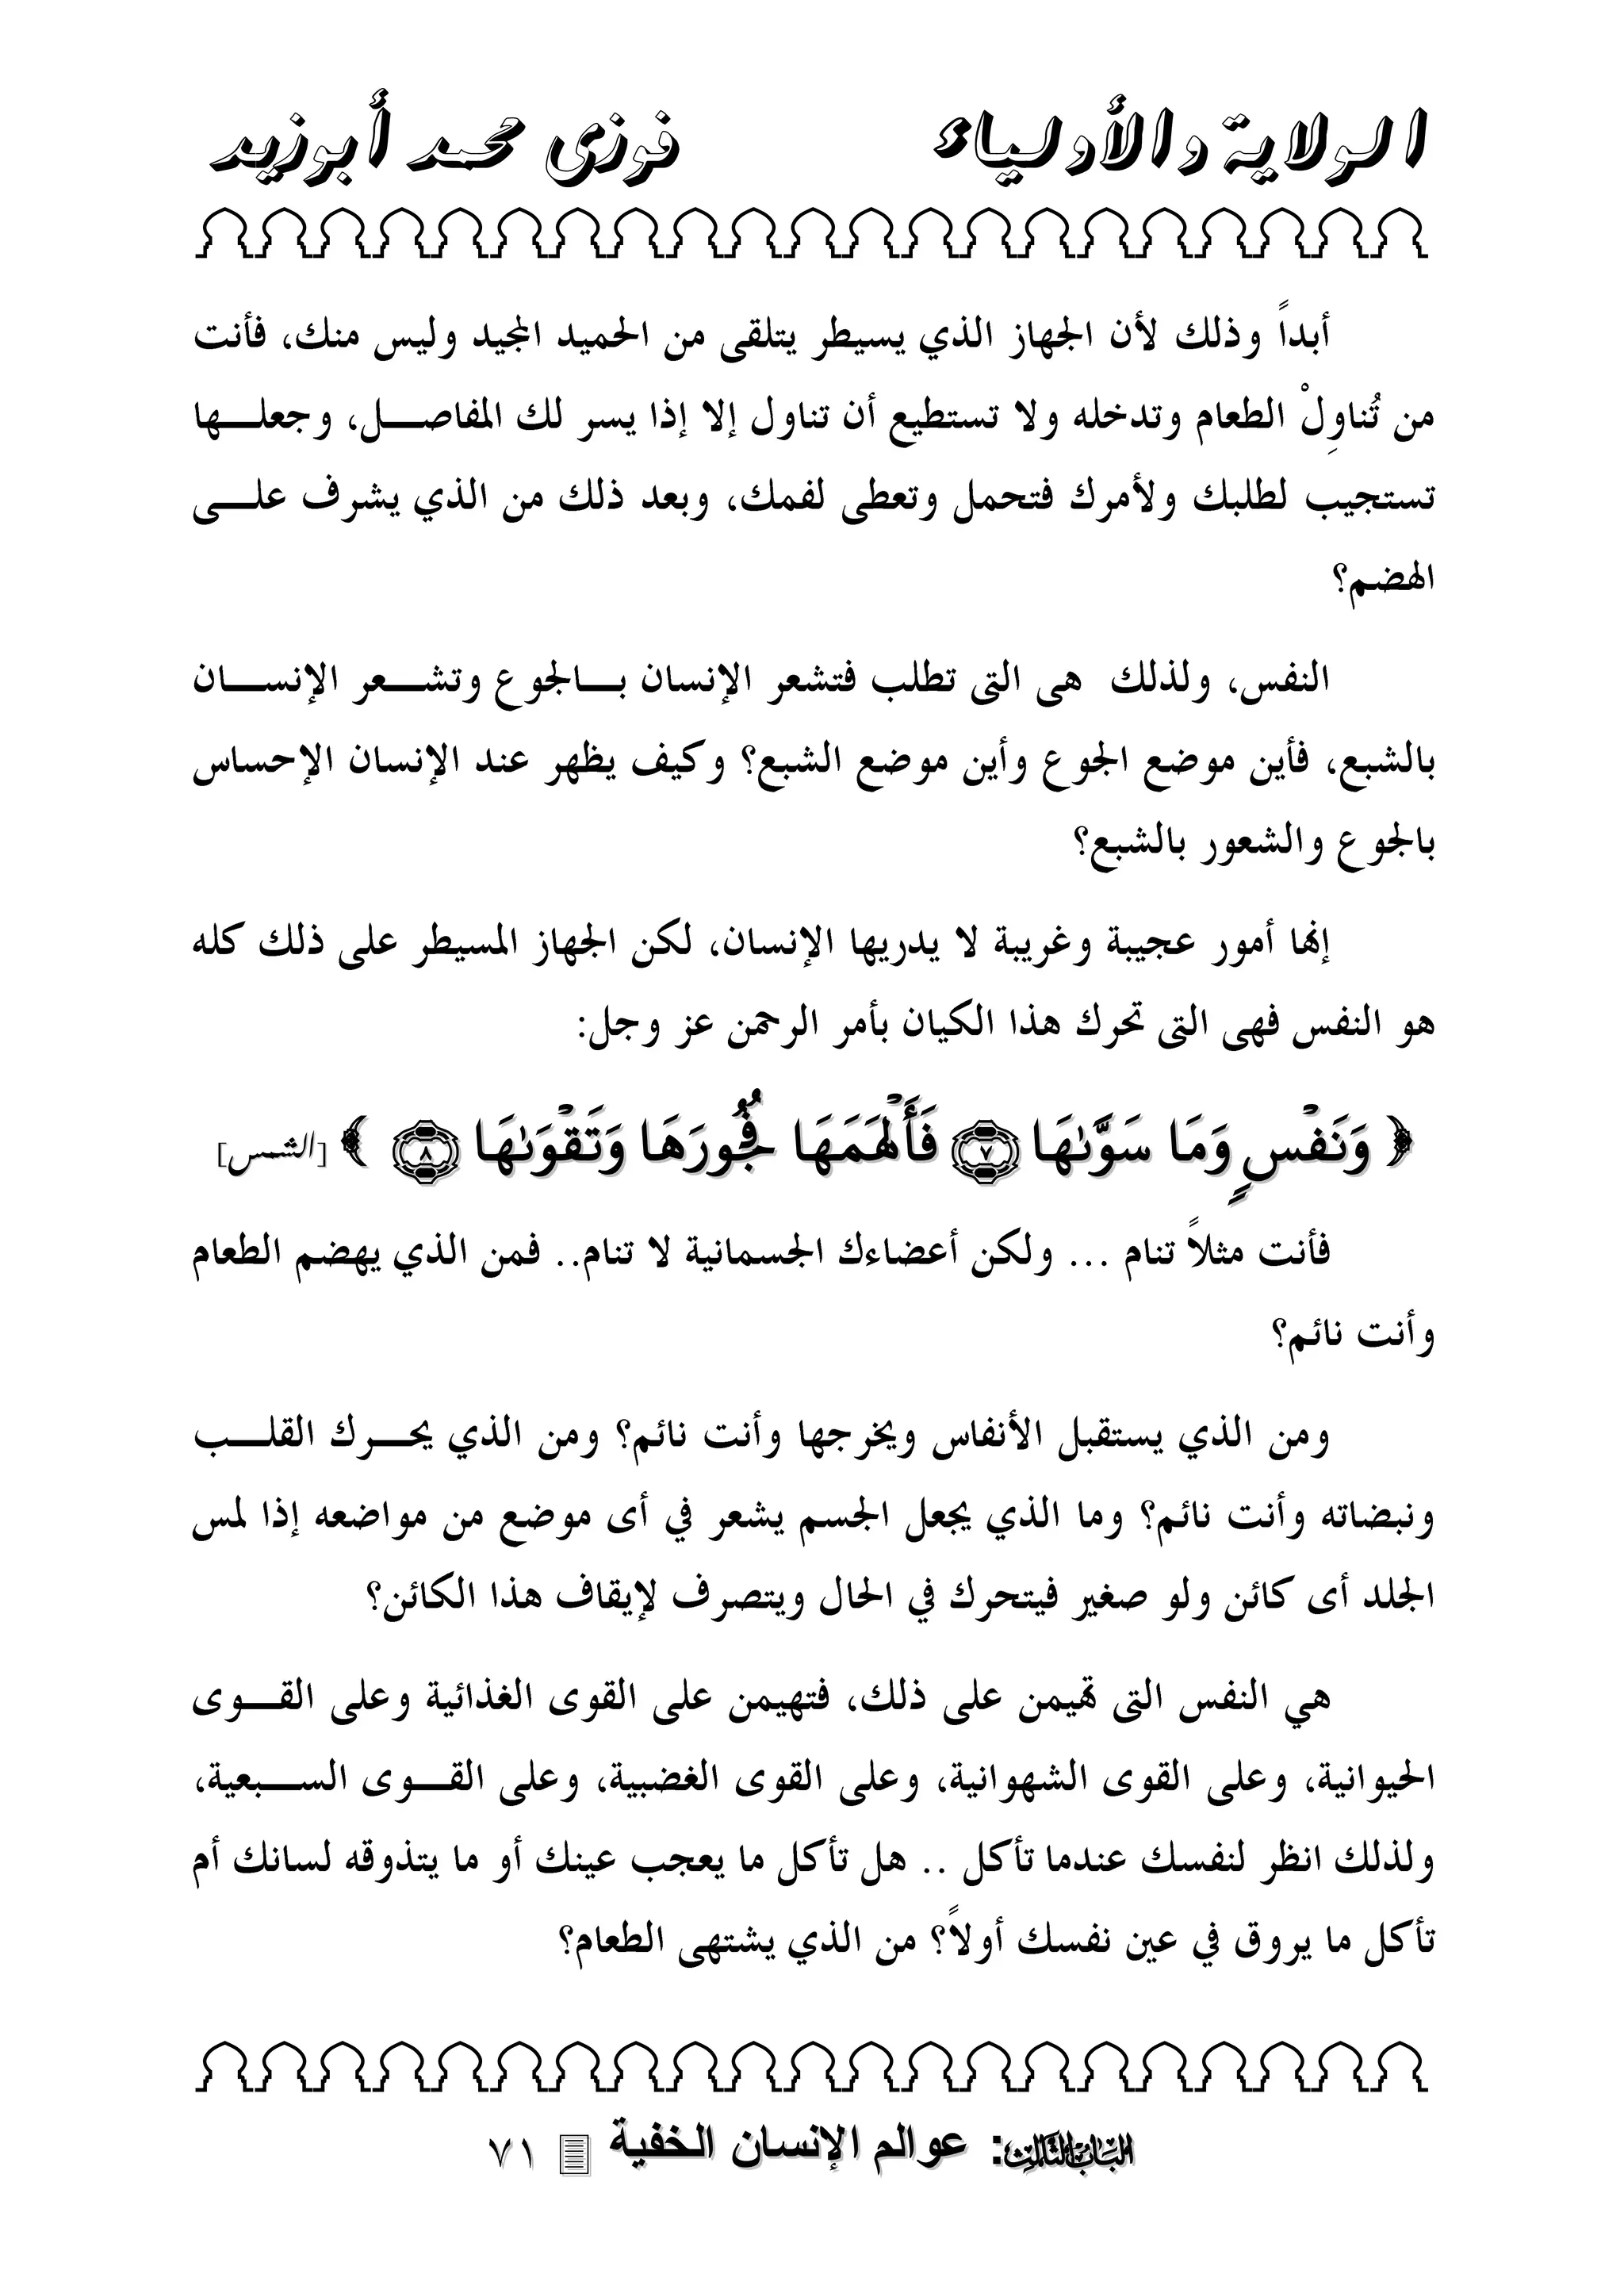 الولاية والأولياء فوزى محمد أبوزيد
أبداً وذلك لأن الجهاز الذي يسيطر يتلقى من الحميد المجيد وليس منك، فأنت
من تُناوِلْ الطعام وتدخله ولا تستطيع أن تناول إلا إذا يسر لك المفاصل، وجعلها
تستجيب لطلبك ولأمرك فتحمل وتعطى لفمك، وبعد ذلك من الذي يشرف على
الهضم؟
النفس، ولذلك هى التى تطلب فتشعر الإنسان بالجوع وتشعر الإنسان
بالشبع، فأين موضع الجوع وأين موضع الشبع؟ وكيف يظهر عند الإنسان الإحساس
بالجوع والشعور بالشبع؟
إنها أمور عجيبة وغريبة لا يدريها الإنسان، لكن الجهاز المسيطر على ذلك كله
هو النفس فهى التى تحرك هذا الكيان بأمر الرحمن عز وجل:
﴿ وَنَفْسٍ وَمَا سَوَّىٰهَا ٧ فَأَلْهَمَهَا فُجُورَهَا وَتَقْوَىٰهَا ٨ ﴾ [الشمس]
فأنت مثلاً تنام ... ولكن أعضاءك الجسمانية لا تنام.. فمن الذي يهضم الطعام
وأنت نائم؟
ومن الذي يستقبل الأنفاس ويخرجها وأنت نائم؟ ومن الذي يحرك القلب
ونبضاته وأنت نائم؟ وما الذي يجعل الجسم يشعر في أى موضع من مواضعه إذا لمس
الجلد أى كائن ولو صغير فيتحرك في الحال ويتصرف لإيقاف هذا الكائن؟
هي النفس التى تهيمن على ذلك، فتهيمن على القوى الغذائية وعلى القوى
الحيوانية، وعلى القوى الشهوانية، وعلى القوى الغضبية، وعلى القوى السبعية،
ولذلك انظر لنفسك عندما تأكل .. هل تأكل ما يعجب عينك أو ما يتذوقه لسانك أم
تأكل ما يروق في عين نفسك أولاً؟ من الذي يشتهى الطعام؟
الباب الثالث: عوالم الإنسان الخفية ٧١